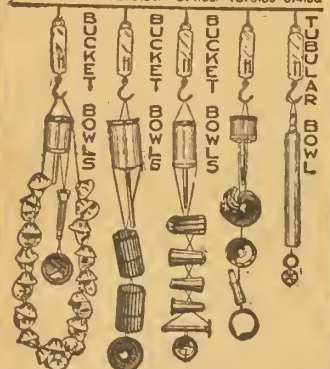 BUCKET BOWLS
BUCKET BOWLS
BUCKET BOWLS
TUBULAR BOWL